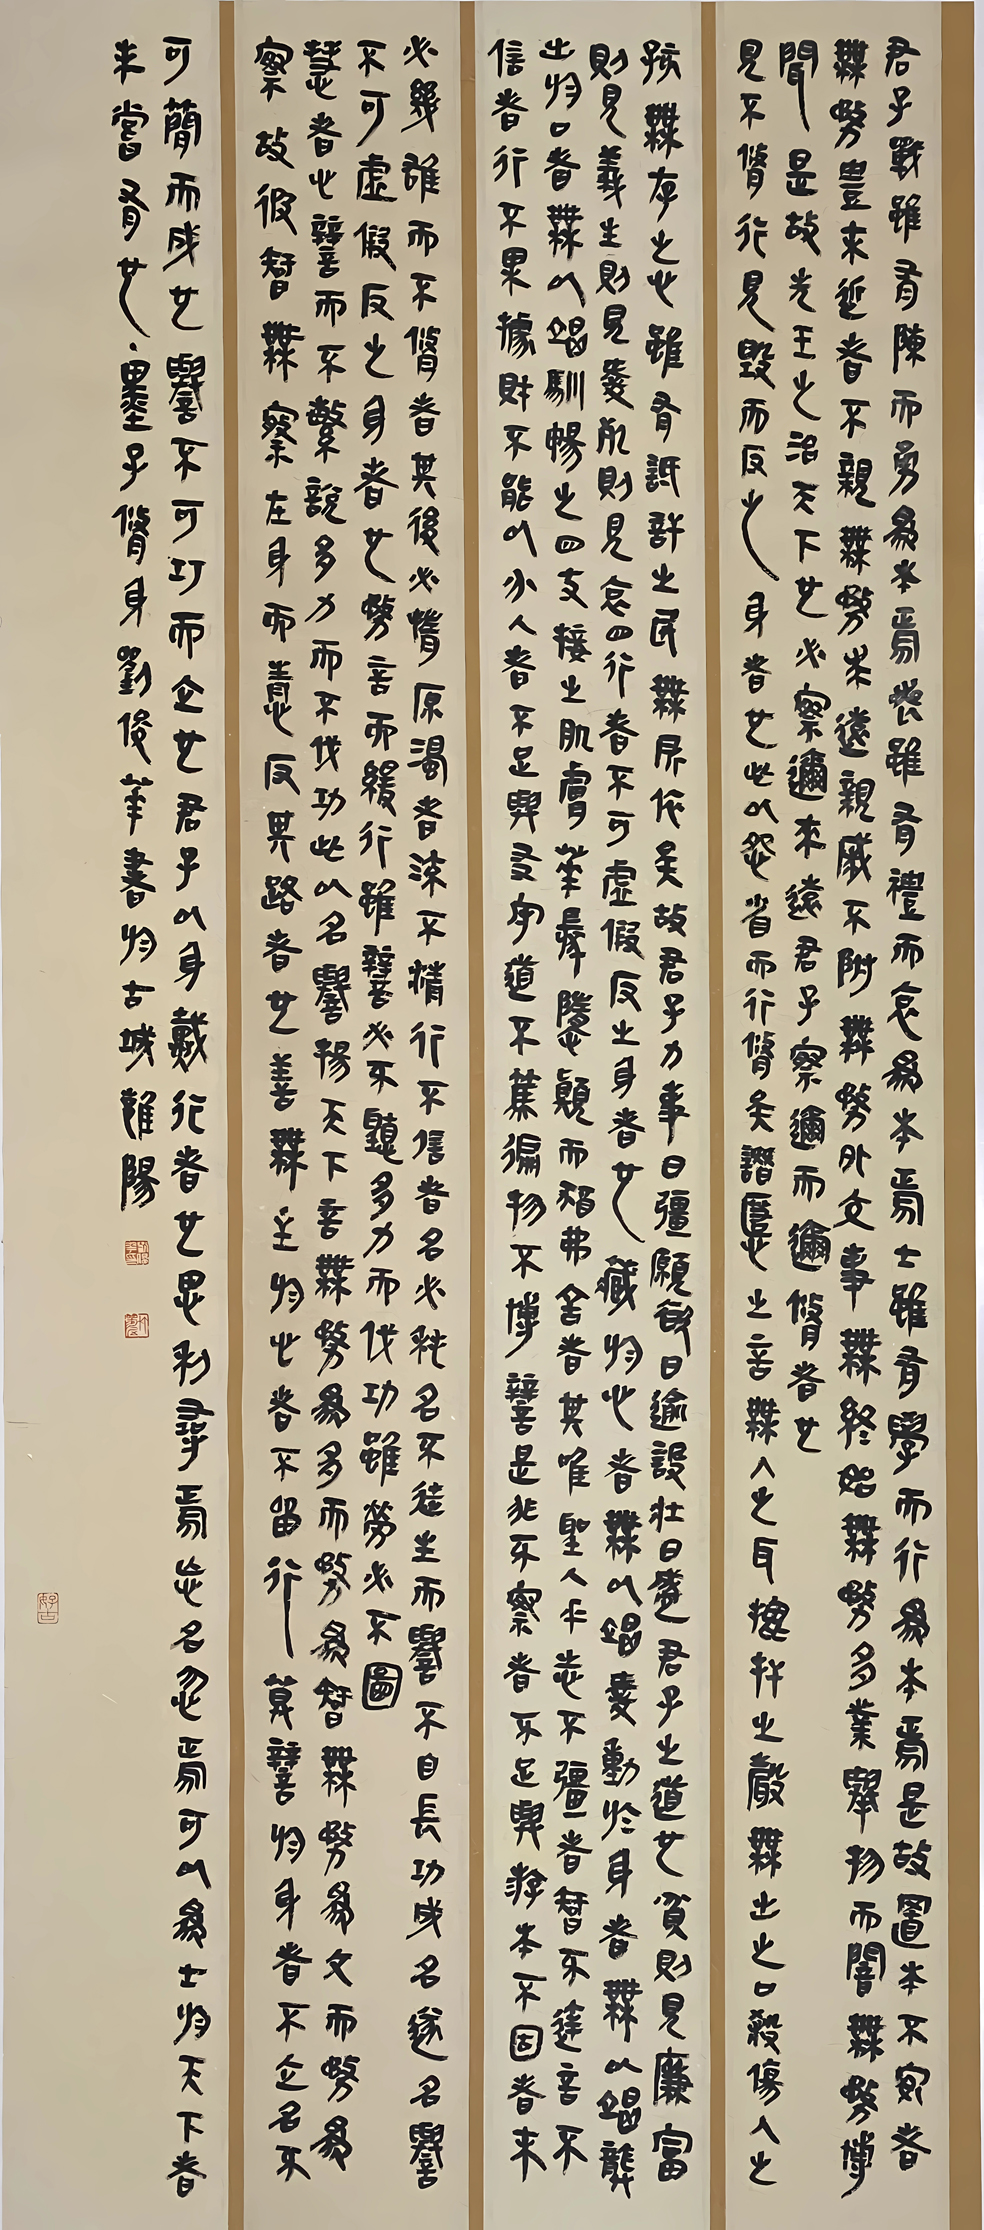 君子戰雖有陳而勇為本焉喪雖有禮而哀為本焉士雖有學而行為本焉是故置本不安者
無務豐末近者不親無務來遠親戚不附無務外交事無終始無務多業舉物而闇無務博
聞是故先王之治天下也必察邇來遠君子察邇而邇脩者也
見不脩行見毀而反之身者也此以怨省而行脩矣譖慝之言無入之耳批扞之聲無出之口殺傷人之
孩無存之心雖有詆訐之民無所依矣故君子力事日彊願欲日逾設壯日盛君子之道也貧則見廉富
則見義生則見愛死則見哀四行者不可虛假反之身者也藏於心者無以竭愛動於身者無以竭恭
出於口者無以竭馴暢之四支接之肌膚華髮隳顛而猶弗舍者其唯聖人乎志不彊者智不達言不
信者行不果據財不能以分人者不足與友守道不篤徧物不博辯是非不察者不足與游本不固者末
必幾雄而不脩者其後必惰原濁者流不清行不信者名必秏名不徒生而譽不自長功成名遂名譽
不可虛假反之身者也務言而緩行雖辯必不聽多力而伐功雖勞必不圖
慧者心辯而不繁說多力而不伐功此以名譽揚天下言無務為多而務為智無務為文而務為
察故彼智無察在身而情反其路者也善無主於心者不留行莫辯於身者不立名不
可簡而成也譽不可巧而立也君子以身戴行者也思利尋焉忘名忽焉可以為士於天下者
未嘗有也墨子脩身劉俊華書於古城雒陽
好古